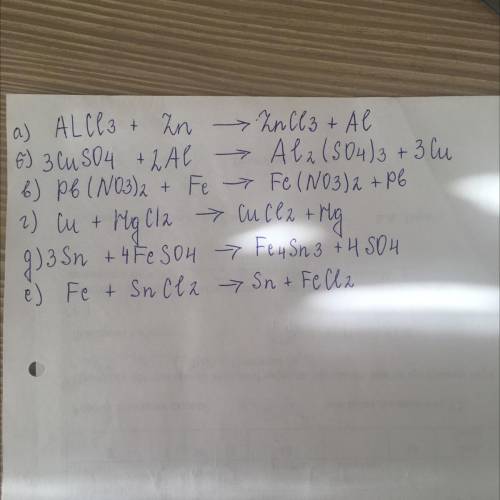 а) ALCl3 + Zn → ZnCl3 + Al
б) 3CuSO4 + 2Al → Al2(SO4)3 + 3Cu
в) Pb(NO3)2 + Fe → Fe(NO3)2 + Pb
г) Cu + HgCl2 → CuCl2 + Hg
д) 3Sn + 4FeSO4 → Fe4Sn3 + 4SO4
е) Fe + SnCl2 → Sn + FeCl2